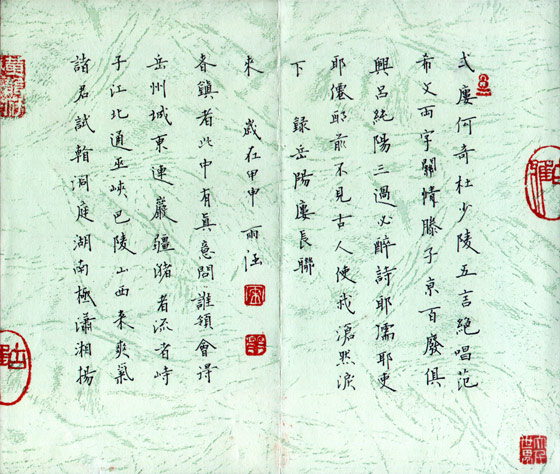 弌廔何奇杜少陵五言絕唱范
希文兩字關情滕子京百廢俱
興呂純陽三過必醉詩耶儒耶吏
耶僊耶前不見古人使我滄然淚
下 錄岳陽廔長聯
諸君試看洞庭湖南極瀟湘揚
子江北通巫峽巴陵山西来爽氣
岳州城東連巖疆潴者流者峙
者鎮者此中有真意問誰領會得
來 歲在甲申